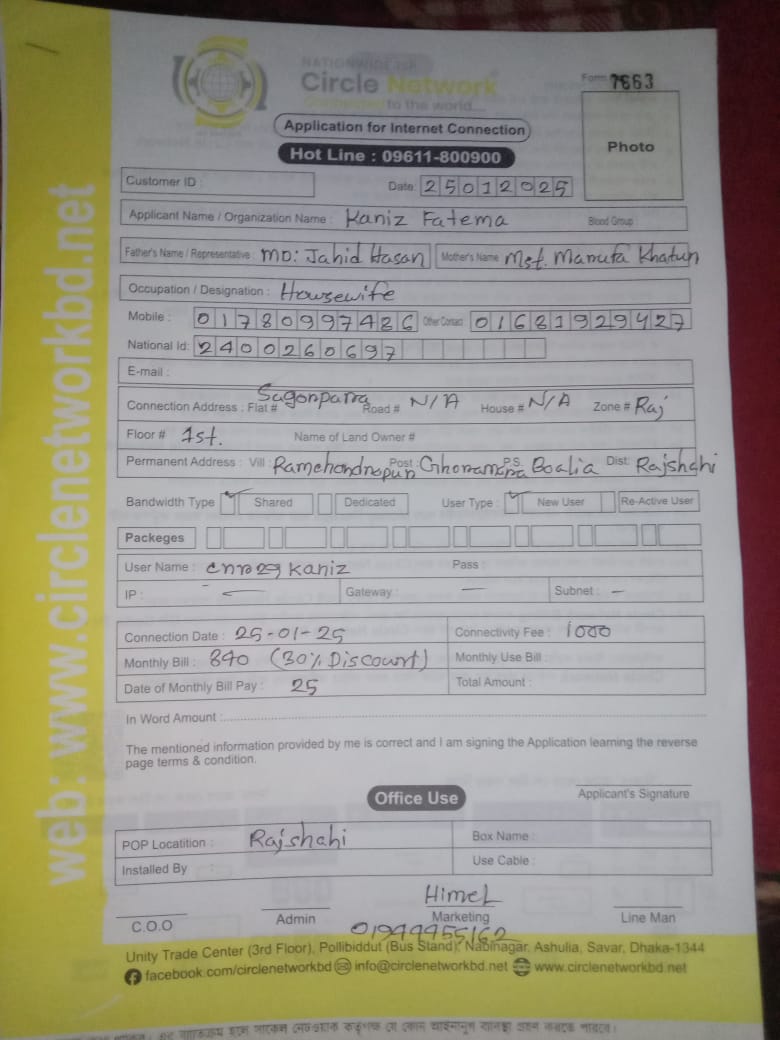 NATIONWIDE ISP
Circle Network
Connected to the world...
Form 7663
Application for Internet Connection
Photo
Hot Line : 09611-800900
Customer ID :
Date: 25012025
Applicant Name / Organization Name : Kaniz Fatema Blood Group
Father's Name / Representative : MD: Jahid Hasan Mother's Name Mst. Manufa Khatun
Occupation / Designation : Housewife
Mobile : 01780997486 Other Contact 01681929427
National Id: 2400260697
E-mail :
Connection Address : Flat # Sagonparra Road # N/A House # N/A Zone # Raj
Floor # 1st. Name of Land Owner #
Permanent Address : Vill : Ramchondropur Post : Ghoramara P.S. Boalia Dist: Rajshahi
Bandwidth Type Shared Dedicated User Type : New User Re-Active User
Packeges
User Name : kaniz Pass :
IP : – Gateway : – Subnet : –
Connection Date : 25-01-25 Connectivity Fee : 1000
Monthly Bill : 840 (30% Discount) Monthly Use Bill :
Date of Monthly Bill Pay : 25 Total Amount :
In Word Amount :
The mentioned information provided by me is correct and I am signing the Application learning the reverse
page terms & condition.
Applicant's Signature
Office Use
POP Locatition : Rajshahi Box Name :
Installed By : Use Cable :
Himel
C.O.O Admin Marketing Line Man
01944455162
Unity Trade Center (3rd Floor), Pollibiddut (Bus Stand), Nabinagar, Ashulia, Savar, Dhaka-1344
facebook.com/circlenetworkbd info@circlenetworkbd.net www.circlenetworkbd.net
web: www.circlenetworkbd.net